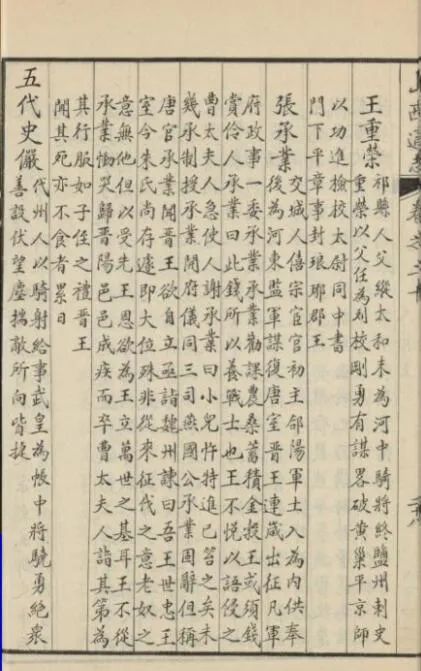 王重榮
祁縣人父縱太和末為河中騎將終鹽州刺史
重榮以父任為列校剛勇有謀畧破黃巢平京師
以功進檢校太尉同中書
門下平章事封琅琊郡王
張承業
交城人僖宗宦官初主郃陽軍士入為內供奉
後為河東監軍謀復唐室晉王連歲出征凡軍
府政事一委承業承業勸課農桑蓄積金穀王或須錢
賞伶人承業曰此錢所以養戰士也王不悅以語侵之
曹太夫人急使人謝承業曰小兒忤特進已笞之矣未
幾承制授承業開府儀同三司燕國公承業固辭但稱
唐官承業聞晉王欲自立亟詣魏州諫曰吾王世忠王
室今朱氏尚存遽即大位殊非從來征伐之意老奴之
意無他但以受先王恩欲為王立萬世之基耳王不從
承業慟哭歸晉陽邑邑成疾而卒曹太夫人詣其第為
其行服如子侄之禮晉王
聞其死亦不食者累日
五代史儼
代州人以騎射給事武皇為帳中將驍勇絕眾
善設伏望塵揣敵所向皆捷